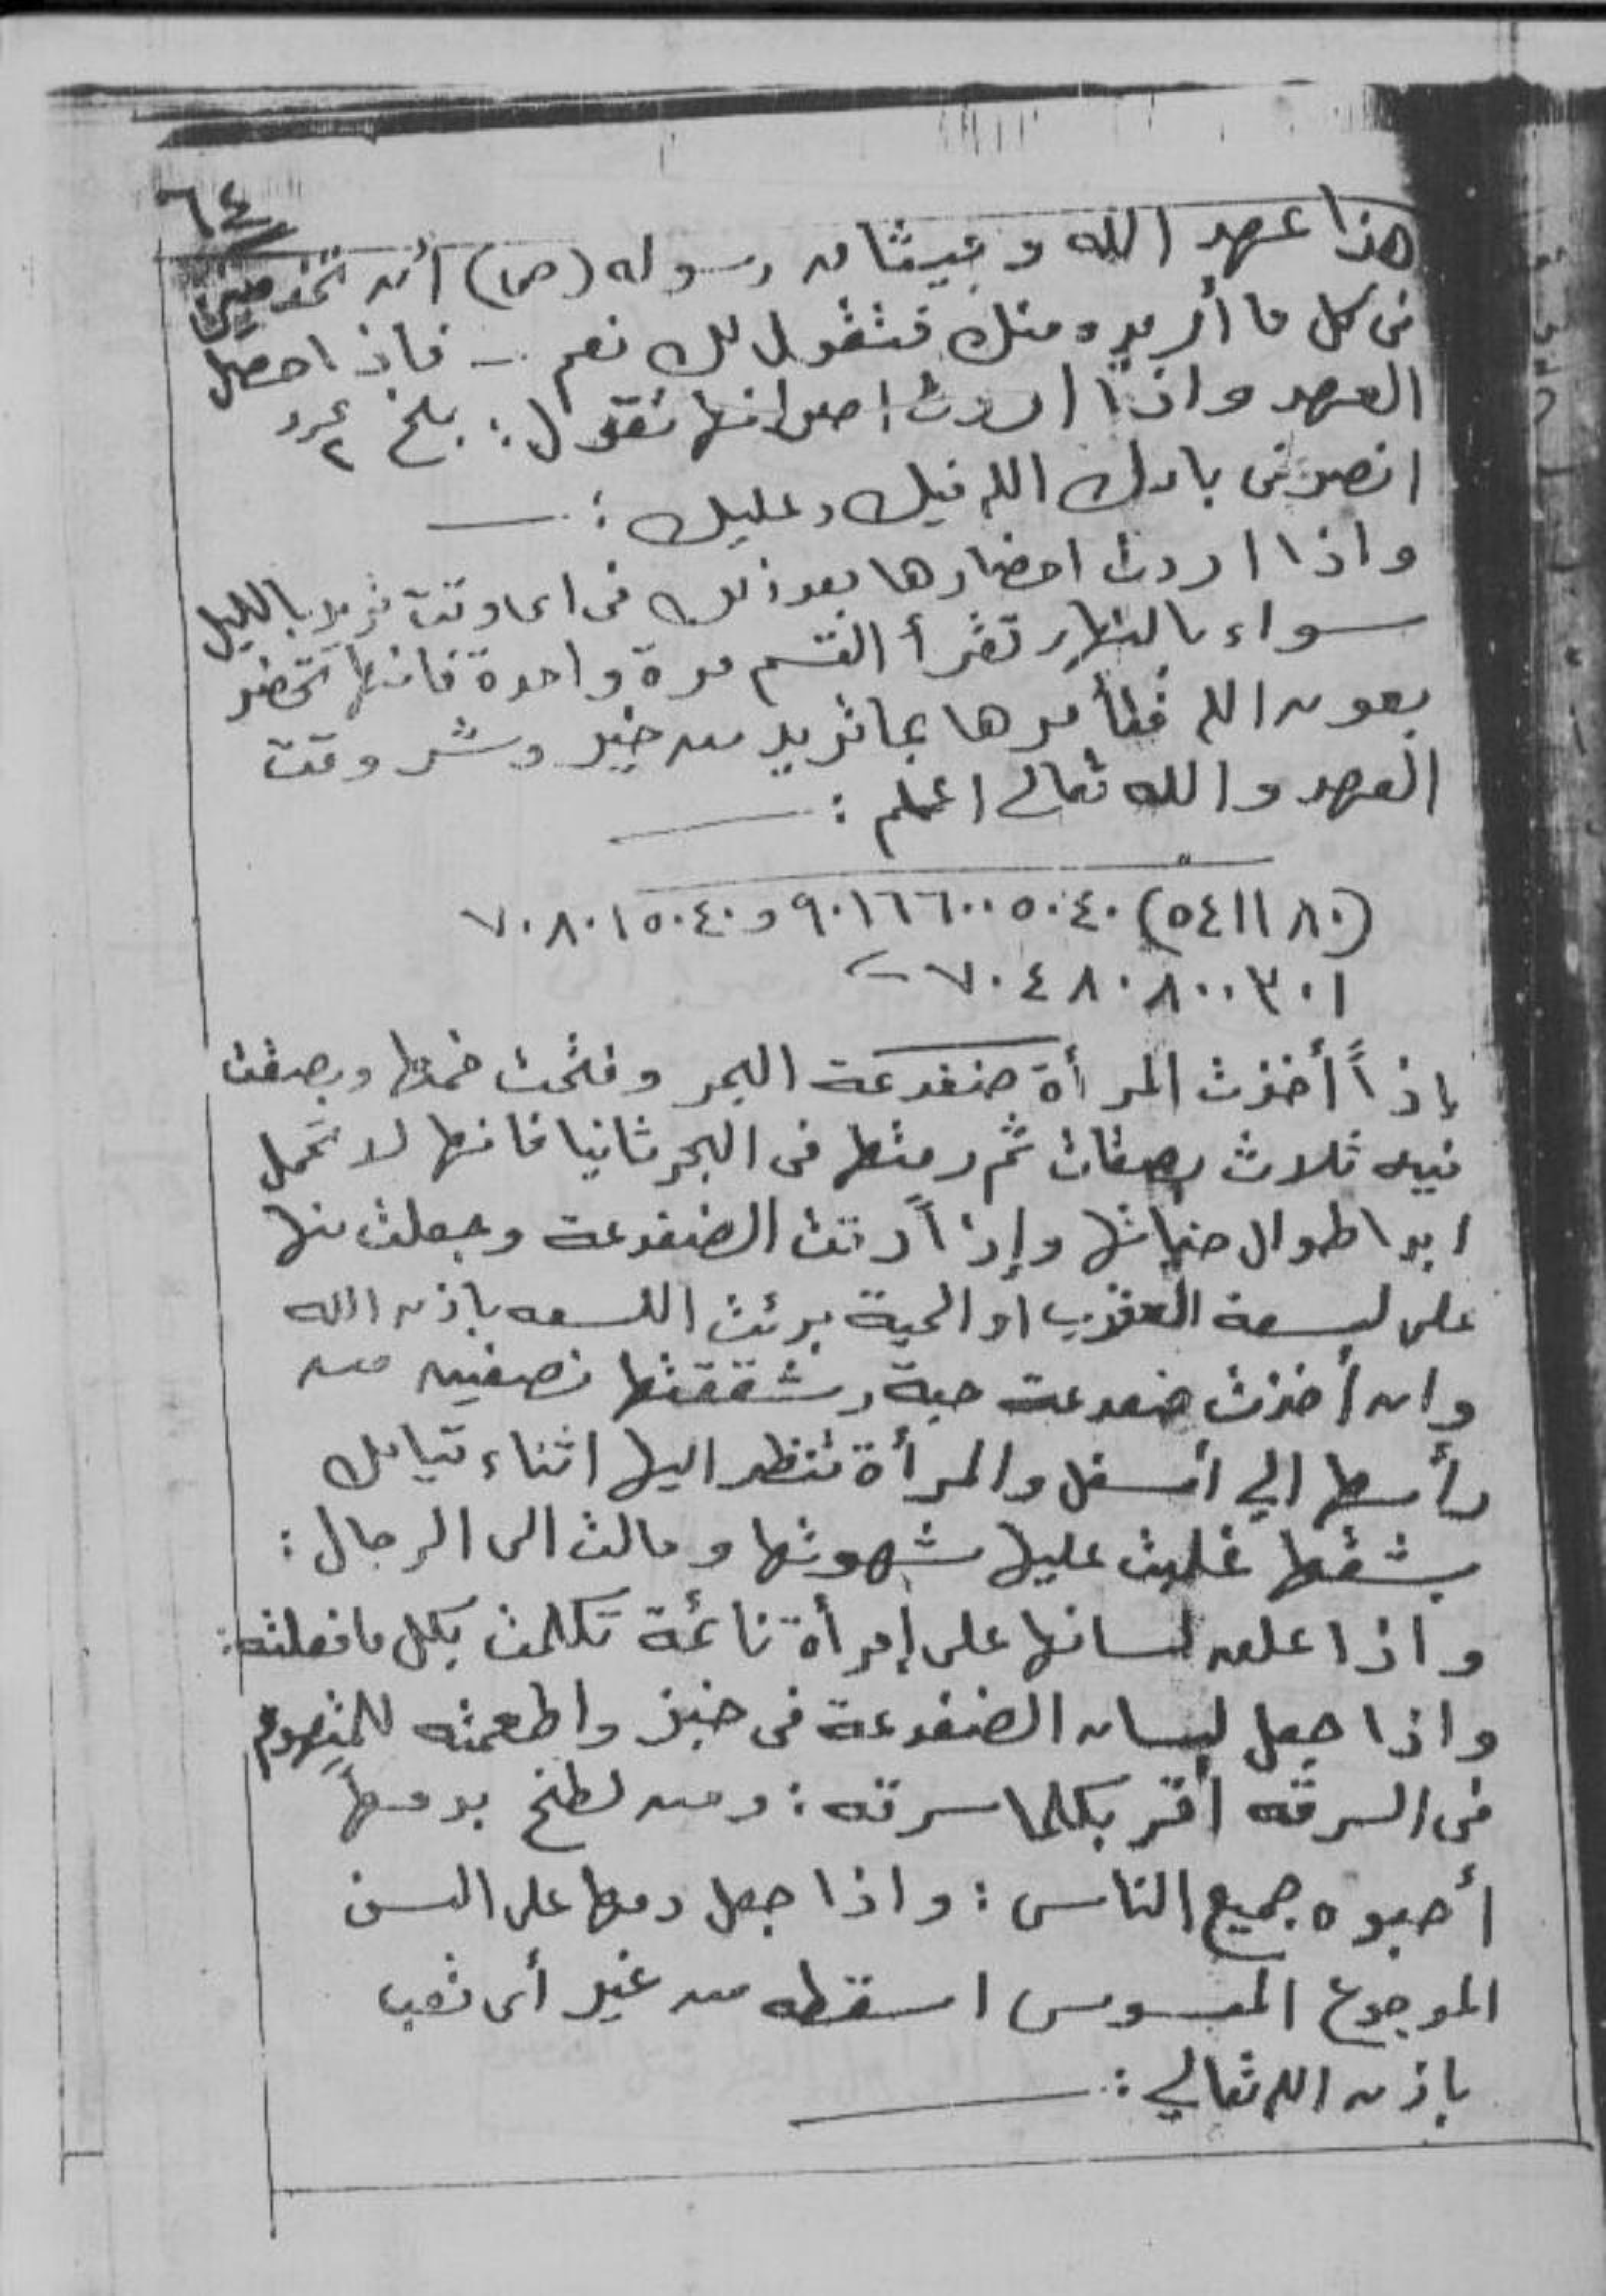 ٦٤
هذا عهد الله وميثاق رسوله (ص) أن تخدميني
في كل ما أريده منك فتقول لك نعم - فاذا حصل
العهد واذا اردت اصرافها تقول: بلخ ٢ عدد
انصرفي بارك الله فيك وعليك :
واذا اردت احضارها بعد ذلك في اى وقت تريد بالليل
سواء بالنهار تقرأ القسم مرة واحدة فانها تحضر
بعون الله فتأمرها بما تريد من خير وشر وقت
العهد والله تعالى اعلم :
(٥٤١١٨٠) ٩٠١٦٦٠٠٥٠٤٠ و ٧٠٨٠١٥٠٤٠
٧٠٤٨٠٨٠٠٣٠١
إذاً أخذت المرأة ضفدعة البحر وفتحت فمها وبصقت
فيه ثلاث بصقات ثم رمتها في البحر ثانيا فانها لا تحمل
ابدا طوال حياتها وإذاً الضفدعة وجعلت منها
على لسعة العقرب او الحية برئت اللسعه باذن الله
وان أخذت ضفدعة حية وشققتها نصفين من
رأسها الي أسفل والمرأة تنظر اليها اثناء قيامك
بشقها غلبت عليها شهوتها ومالت الى الرجال :
واذا علق لسانها على إمرأة نائمة تكلمت بكل ما فعلته :
واذا جعل لسان الضفدعة في خبز واطعمته للمتهوم
في السرقه أقر بكلما سرقه : ومن لطخ بدمها
أحبوه جميع الناس : واذا جعل دمها على السن
الموجوع المسوس اسقطه من غير أى تعب
باذن الله تعالي :